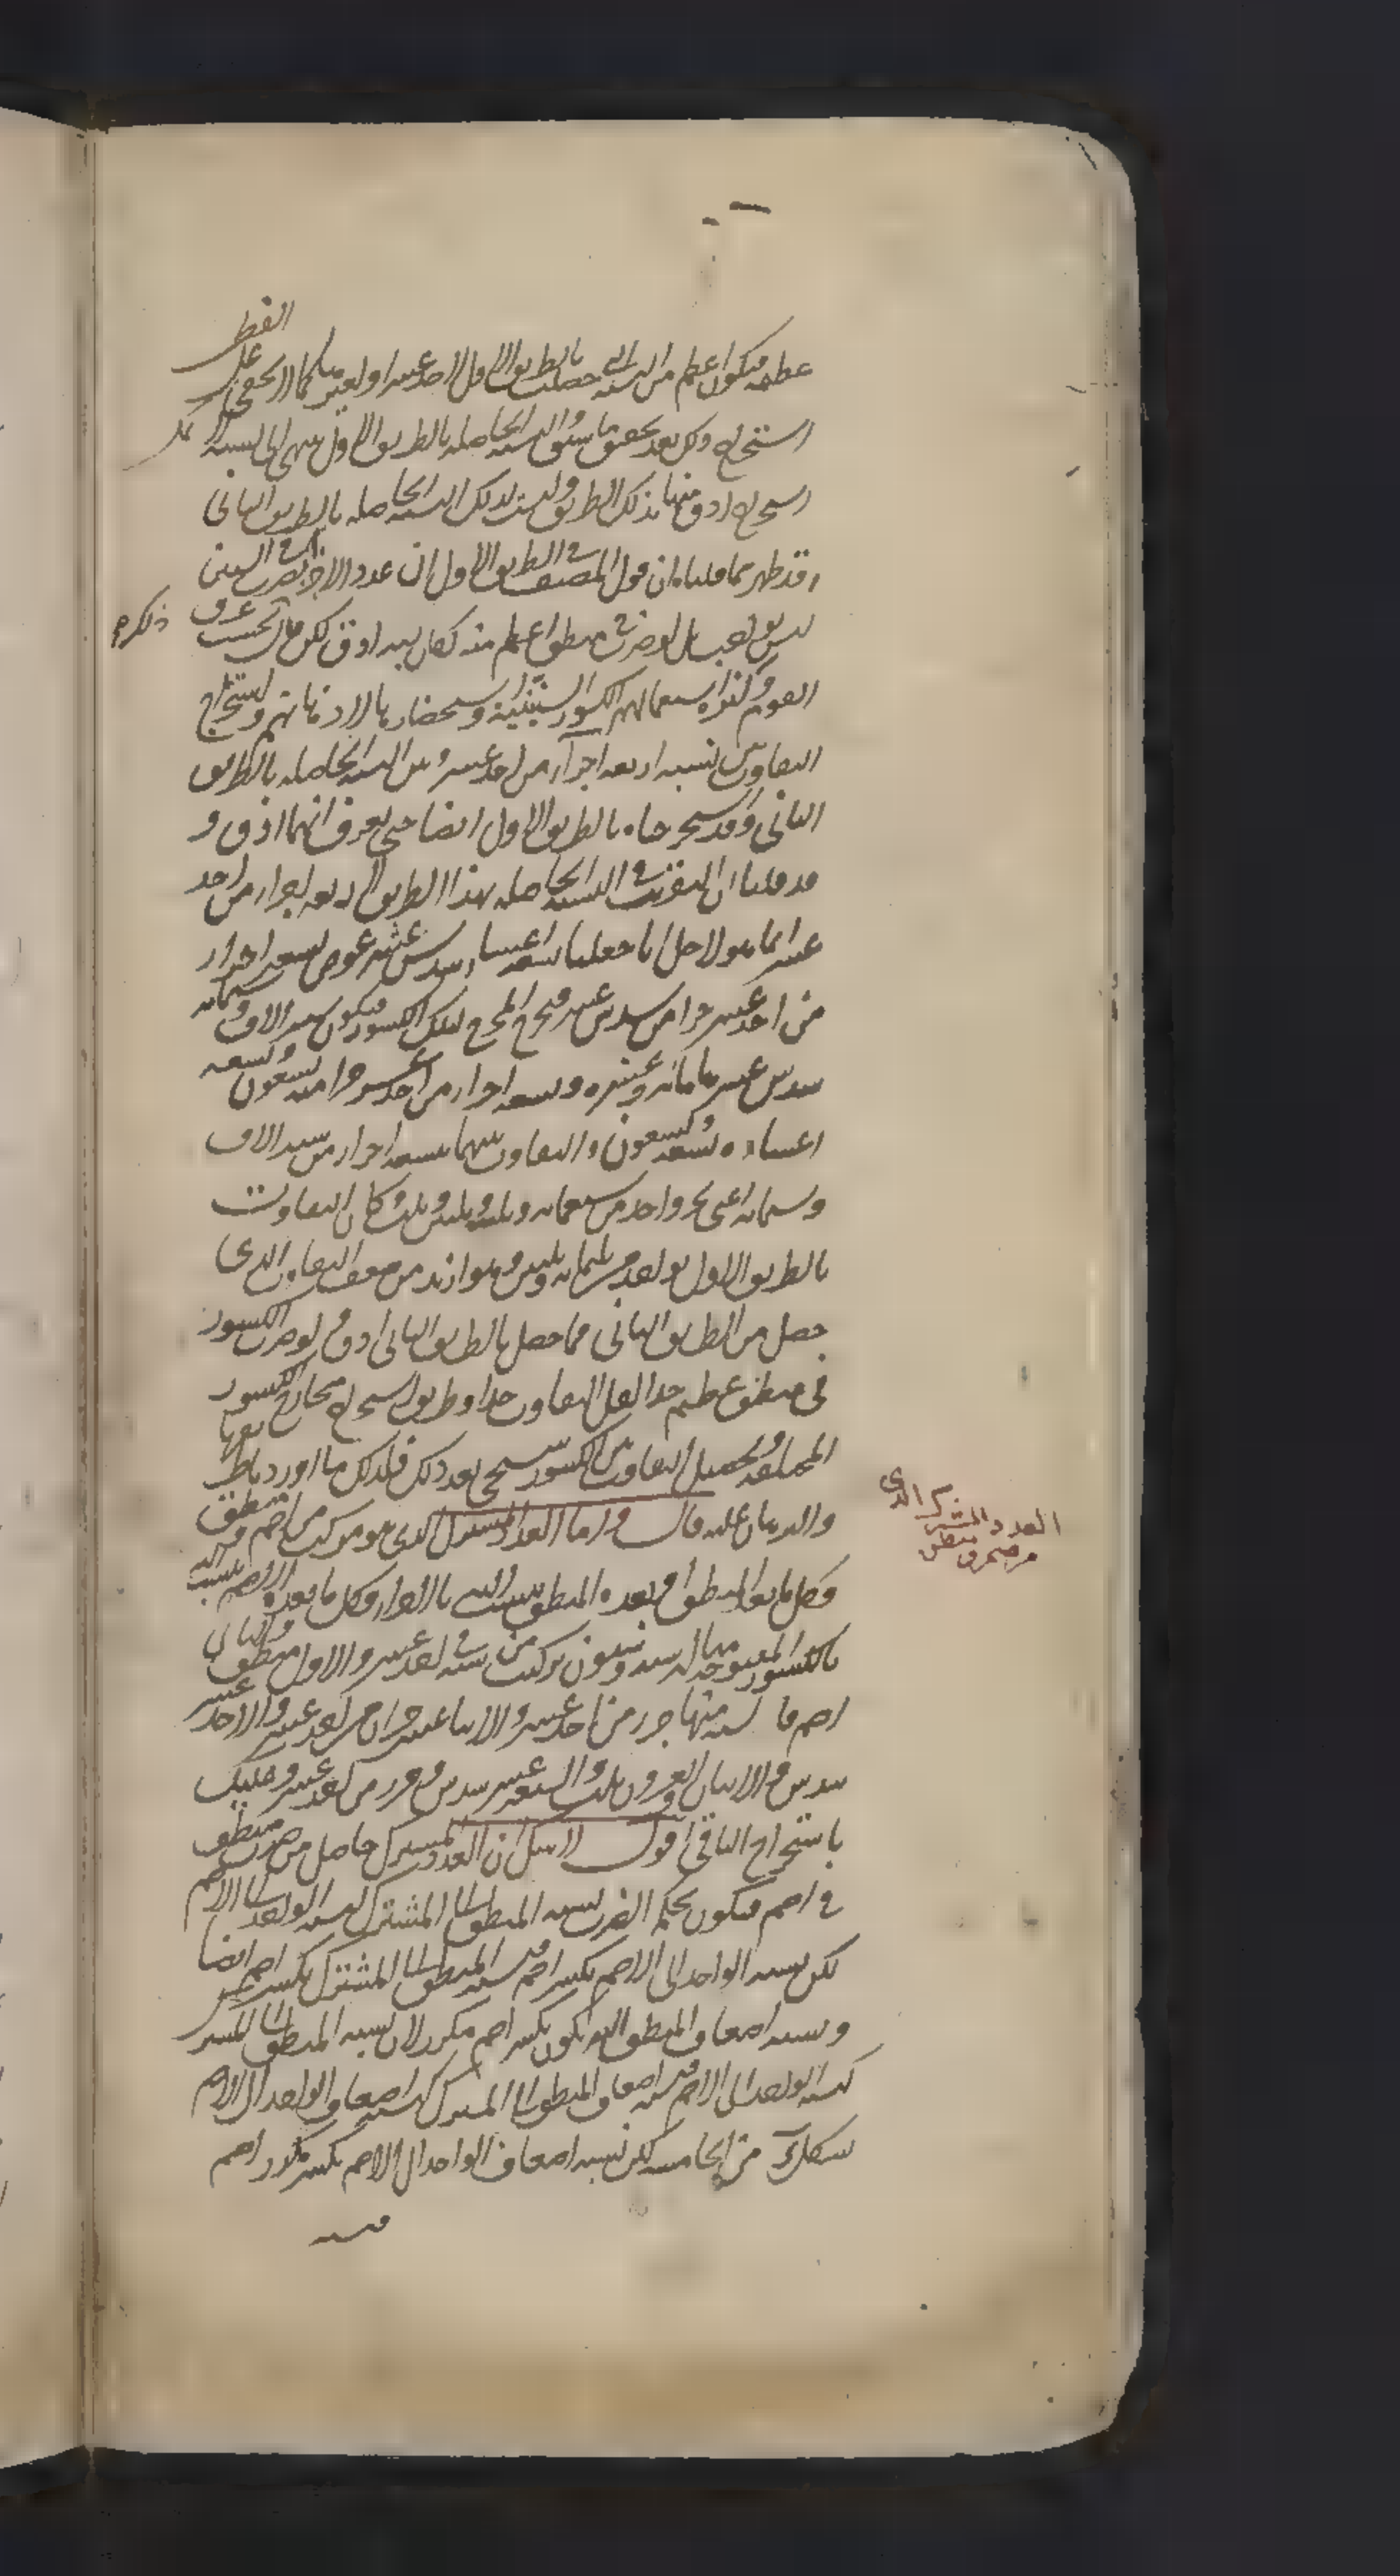 عظمه فيكون اعظم من النسبة التى حصلت بالطريق الاول لاحد عشر او لغيره كما لا يخفى على الفطن
استخراجه ولكن بعد تحقق ما سبق والنسبة الحاصلة بالطريق الاول ينتهى الى نسبة لا يمكن
استخراج ادق منها بذلك الطريق وليست كذلك النسبة الحاصلة بالطريق الثانى
وقد ظهر مما قلناه ان قول المصنف فى الطريق الاول ان عدد الاجزاء يضرب فى الستين
ليس بواجب بل لو ضرب فى منطق اعظم منه كان ادق لكن ذلك بحسب عرف
القوم وكثرة استعمالهم الكسور الستينية واستحضارها لاذهانهم ولنستخرج
التفاوت بين نسبة اربعة اجزاء من احد عشر وبين النسبة الحاصلة بالطريق
الثانى وقد استخرجناه بالطريق الاول ايضا حتى يعرف انهما ادق و
قد قلنا ان التفاوت فى النسبة الحاصلة بهذا الطريق لاربعة اجزاء من احد
عشر انما هو لاجل انا جعلنا تسعة اعشار وسدس عشر عوض تسعة اجزاء
من احد عشر جزا من سدس عشر فمخرج المخرج لتلك الكسور فيكون ستة الاف وستمائة
سدس عشرها مائة وعشرة وتسعة اجزاء من احد عشر جزا منه تسعون
اعشاره تسعة وتسعون والتفاوت بينهما تسعة اجزاء من ستة الاف
وستمائة اعنى جزو واحد من سبعمائة وثلثة وثلثين وثلث وكان التفاوت
بالطريق الاول بواحد من ثلثمائة وثلثين وهو ازيد من ضعف التفاوت الذى
حصل من الطريق الثانى فما حصل بالطريق الثانى ادق ولو ضرب الكسور
فى منطق عظيم جدا لقل التفاوت جدا وطريق استخراج مخارج الكسور
المختلفة وتحصيل التفاوت بين الكسور سيجئ بعد ذلك فلذلك ما اوردناها
والبرهان عليه قال واما العدد المشترك الذى هو مركب من اصم ومنطق
وكل ما يعد المنطق او يعده المنطق ينسب اليه بالاجزاء وكل ما يعده الاصم ينسب اليه
بالكسور المفتوحة مثاله ستة وستون تركبت من ستة فى احد عشر والاول منطق والثانى
اصم فالستة منها جزو من احد عشر والاثنا عشر جزان من احد عشر والاحد عشر
سدس والاثنان والعشرون ثلث والسبعة عشر سدس وجزو من احد عشر وعليك
باستخراج الباقى اقول لا شك ان العدد المشترك حاصل من ضرب منطق
فى اصم فيكون بحكم الضرب نسبة المنطق الى المشترك كنسبة الواحد الى الاصم
لكن نسبة الواحد الى الاصم بكسر اصم فنسبة المنطق الى المشترك بكسر اصم ايضا
ونسبة اضعاف المنطق اليه يكون بكسر اصم مكرر لان نسبة المنطق الى المشترك
كنسبة الواحد الى الاصم فنسبة اضعاف المنطق الى المشترك كنسبة اضعاف الواحد الى الاصم
من الخامسه لكن نسبة اضعاف الواحد الى الاصم بكسر مكرر اصم
فنسبه
العدد المشترك الذى
من اصم ومنطق